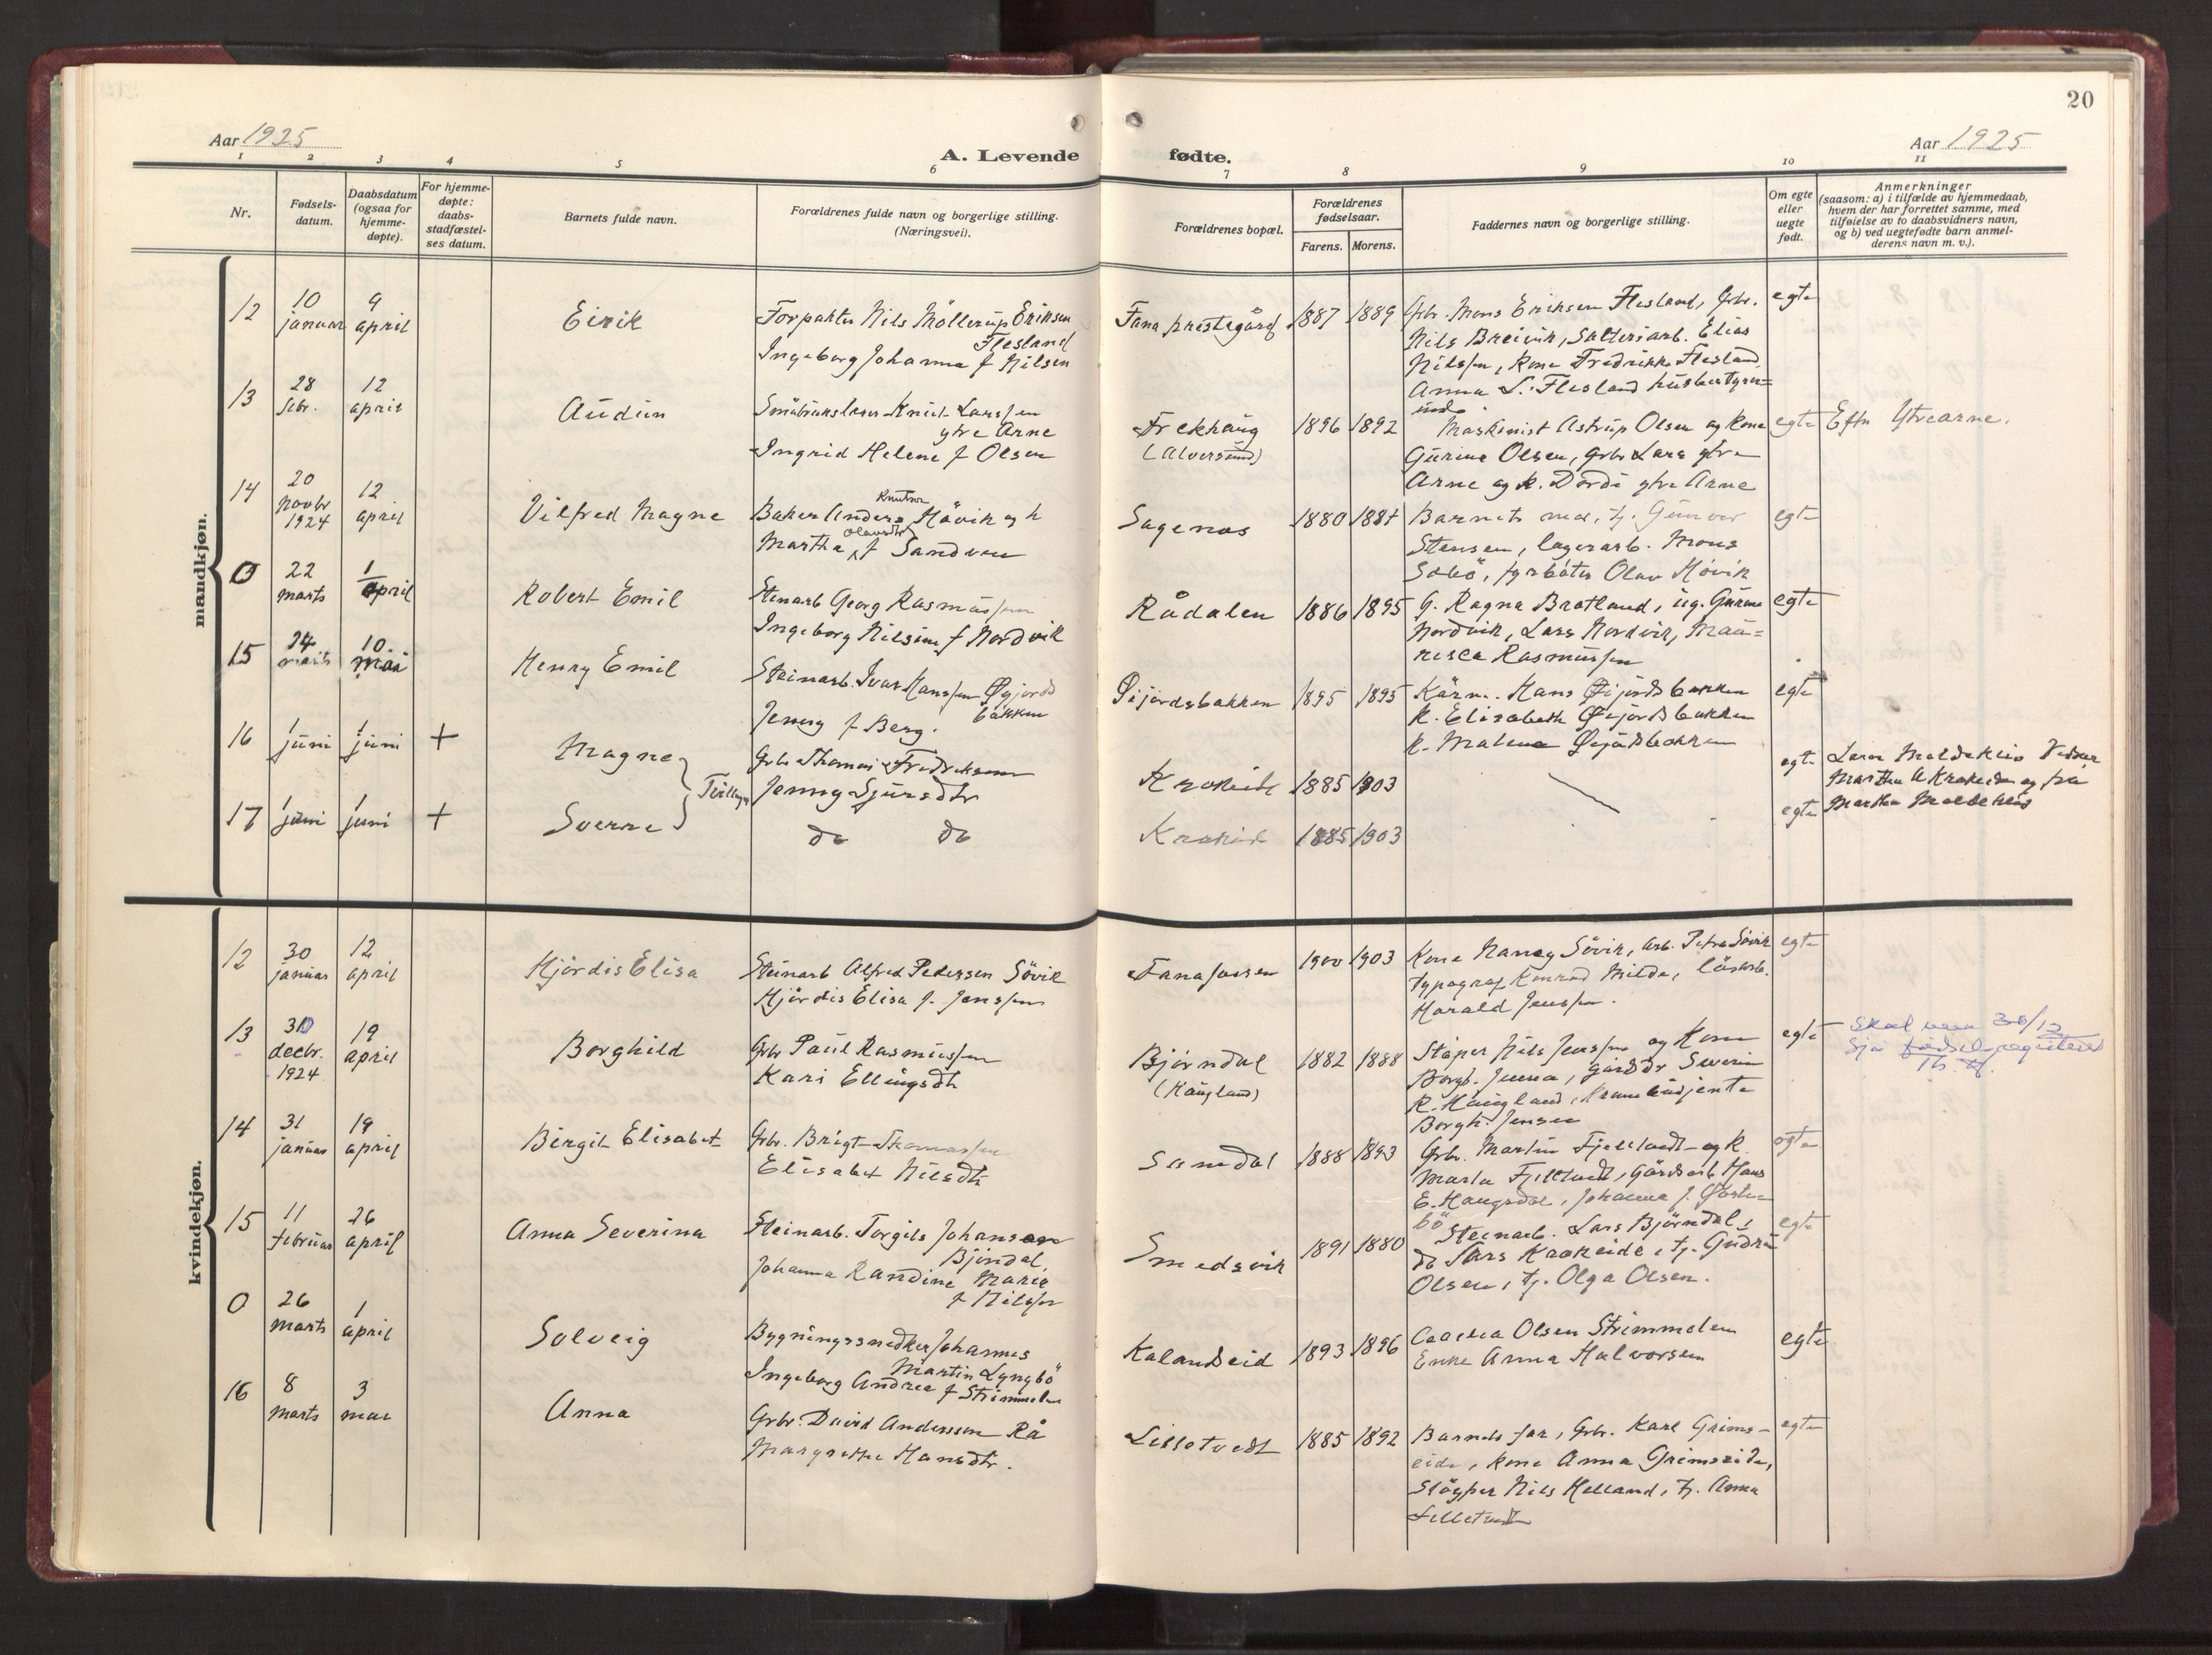 20
Aar 1925
A. Levende fødte.
Aar 1925
1 2 3 4 5 6 7 8 9 10 11
Nr.
Fødsels-
datum.
Daabsdatum
(ogsaa for
hjemme-
døpte).
For hjemme-
døpte:
daabs-
stadfæstel-
ses datum.
Barnets fulde navn.
Forældrenes fulde navn og borgerlige stilling.
(Næringsvei).
Forældrenes bopæl.
Forældrenes
fødselsaar.
Farens. Morens.
Faddernes navn og borgerlige stilling.
Om egte
eller
uegte
født.
Anmerkninger
(saasom: a) i tilfælde av hjemmedaab,
hvem der har forrettet samme, med
tilføielse av to daabsvidners navn,
og b) ved uegtefødte barn anmel-
derens navn m. v.).
mandkjøn.
12
10
januar
9
april
Eirik
Forpakter Nils Möllerup Eriksen
Flesland
Ingeborg Johanna f Nilsen
Fana prestegård
1887 1889
Grbr. Mons Eriksen Flesland, Grbr.
Nils Breivik, Salteriarb. Elias
Nilssen, Kone Fredrikke Flesland
Anna L. Flesland husbestyrer=
inde.
egte
13
28
febr.
12
april
Audun
Småbruksløser Knut Larssen
ytre Arne
Ingrid Helene f Olsen
Frekhaug
(Alversund)
1896 1892
Maskinist Astrup Olsen og Kone
Gurine Olsen, Grbr Lars ytre
Arne og k. Dordi ytre Arne
egte
Eftn Ytrearne.
14
20
novbr
1924
12
april
Vilfred Magne
Baker Anders Knutsen Hövik og h
Martha Olavsdtr f Sandven
Sagenes
1880 1887
Barnets mor, tj. Gunvor
Stensen, lagerarb. Mons
Solbö, fyrbøter Olav Hövik
egte
0
22
marts
1
april
Robert Emil
Stenarb Georg Rasmussen
Ingeborg Nilsine f Nordvik
Rådalen
1886 1895
G. Ragna Bratland, ug. Gurine
Nordvik, Lars Nordvik, Mau=
ritsca Rasmussen
egte
15
24
marts
10.
mai
Henry Emil
Steinarb. Ivar Hanssen Øyjords
bakken
Jenny f Berg.
Øijordsbakken
1895 1895
Hans Øijordsbakken
K. Elisabeth Øijordsbakken
K. Malene Øijordsbakken
egte
16
1
juni
1
juni
+
Magne
Tvillinger
Grbr Thomas Fredriksen
Jenny Sjursdtr
Krokeide
1885 1903
egte
Lars Moldeklev
Martha A Krokeide og fru
Martha Moldeklev
17
1
juni
1
juni
+
Sverre
do do
Krokeide
1885 1903
egte
kvindekjøn.
12
30
januar
12
april
Hjördis Elisa
Steinarb Alfred Pedersen Sövik
Hjördis Elisa f. Jenssen
Fanafossen
1900 1903
Kone Nancy Sövik, Arb. Petra Sövik
typograf Konrad Milde, lösarb.
Harald Jenssen.
egte
13
30
decbr.
1924
19
april
Borghild
Grbr Paul Rasmussen
Kari Ellingsdtr
Bjørndal
(Haugland)
1882 1888
Støper Nils Jenssen og Kone
Borgh. Jensen, Gårdbr Severin
R. Haugland, Krambudjente
Borgh. Jensen
egte
Skal være 30/12
Sjå fødselsregisteret
Th. H.
14
31
januar
19
april
Birgit Elisabet
Grbr. Brigt Thomassen
Elisabet Nilsdtr
Samdal
1888 1893
Grbr. Martin Fjelltvedt og K.
Marta Fjelltvedt, Gårdsarb. Hans
E. Haugsdal, Johanna J. Øvste-
bö
egte
15
11
februar
26
april
Anna Severina
Steinarb. Torgils Johansen
Bjöndal,
Johanna Randine Marie
f Nilssen
Smedsvik
1891 1880
Steenarb. Lars Björndal,
do Lars Krokeide, tj. Gudrun
Olsen, tj. Olga Olsen.
egte
0
26
marts
1
april
Solveig
Bygningssnedker Johannes
Martin Lyngbö
Ingeborg Andrea f Strimmelen
Kalandseid
1893 1896
Olsen Strimmelen
Enke Anna Halvorsen
egte
16
8
marts
3
mai
Anna
Grbr. David Andersson Rå
Margrethe Hansdtr.
Lilletvedt
1885 1892
Barnets far, Grbr. Karl Grims-
eide, Kone Anna Grimseide,
Støyper Nils Helland, tj. Anna
Lilletvedt
egte